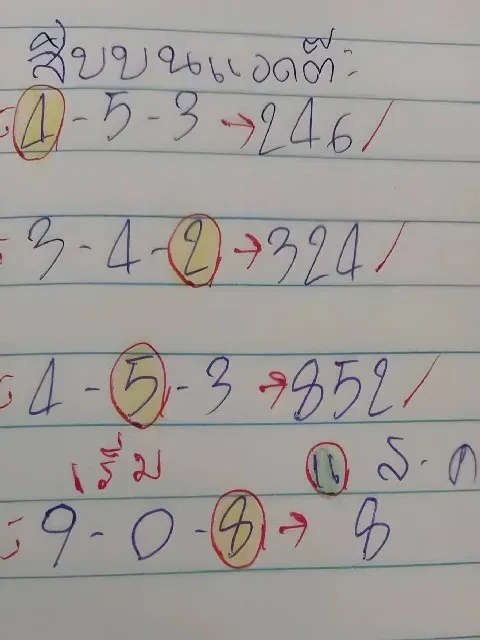 สิบบนแอดต๊ะ
4-5-3→246/
3-4-2→324/
4-5-3→852/
เริ่ม น ส.ค
9-0-8→ 8